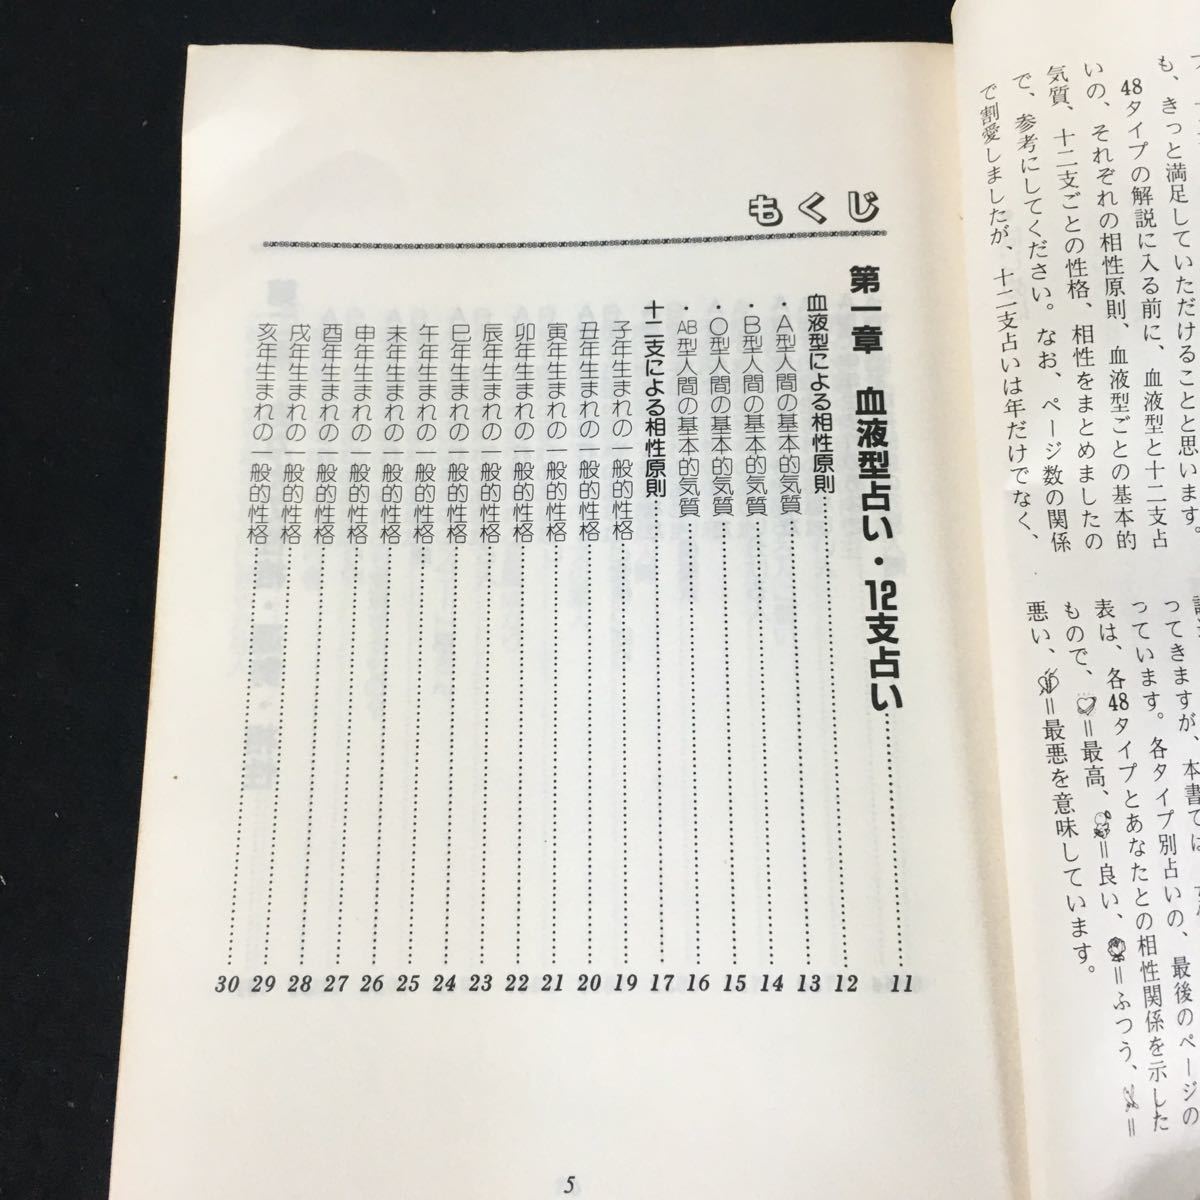 も、きっと満足していただけることと思います。
48タイプの解説に入る前に、血液型と十二支占
いの、それぞれの相性原則、血液型ごとの基本的
気質、十二支ごとの性格、相性をまとめましたの
で、参考にしてください。なお、ページ数の関係
で割愛しましたが、十二支占いは年だけでなく、
ってきますが、本書では、
っています。各タイプ別占いの、最後のページの
表は、各48タイプとあなたとの相性関係を示した
もので、＝最高、＝良い、＝ふつう、＝
悪い、＝最悪を意味しています。
もくじ
第一章 血液型占い・12支占い……11
血液型による相性原則……12
・A型人間の基本的気質……13
・B型人間の基本的気質……14
・O型人間の基本的気質……15
・AB型人間の基本的気質……16
十二支による相性原則……17
子年生まれの一般的性格……19
丑年生まれの一般的性格……20
寅年生まれの一般的性格……21
卯年生まれの一般的性格……22
辰年生まれの一般的性格……23
巳年生まれの一般的性格……24
午年生まれの一般的性格……25
未年生まれの一般的性格……26
申年生まれの一般的性格……27
酉年生まれの一般的性格……28
戌年生まれの一般的性格……29
亥年生まれの一般的性格……30
5